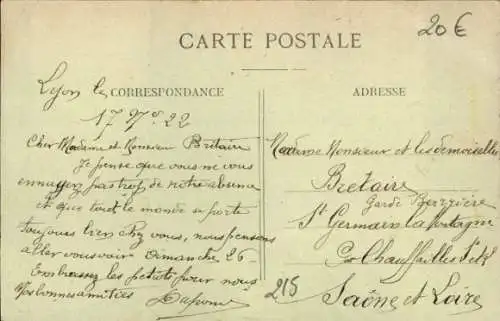 20 €
CARTE POSTALE
CORRESPONDANCE
ADRESSE
Lyon le
17 9re 22
Cher Madame et Monsieur Bretaire
Je pense que vous ne vous
ennuyez pas trop de notre absence
et que tout le monde se porte
toujours bien chez vous, nous pensons
aller vous voir Dimanche 26
Embrassez les petits pour nous
Nos bonnes amitiés
Madame Monsieur et les demoiselles
Bretaire
Garde
St Germain la Montagne
Chauffailles
Saône et Loire
215